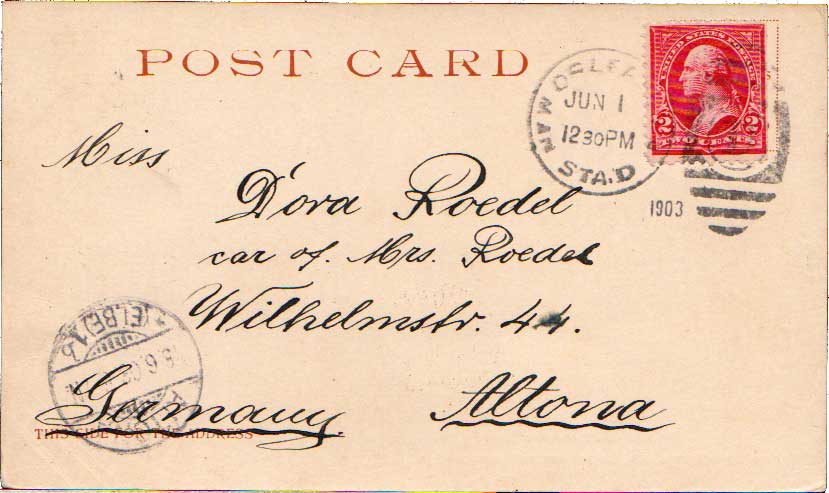 POST CARD
JUN 1
1230PM
STA.D
1903
UNITED STATES POSTAGE
2 2
TWO CENTS
Miss
Dora Roedel
car of. Mrs. Roedel
Wilhelmstr. 44.
Germany. Altona
(ELBE)
THIS SIDE FOR THE ADDRESS